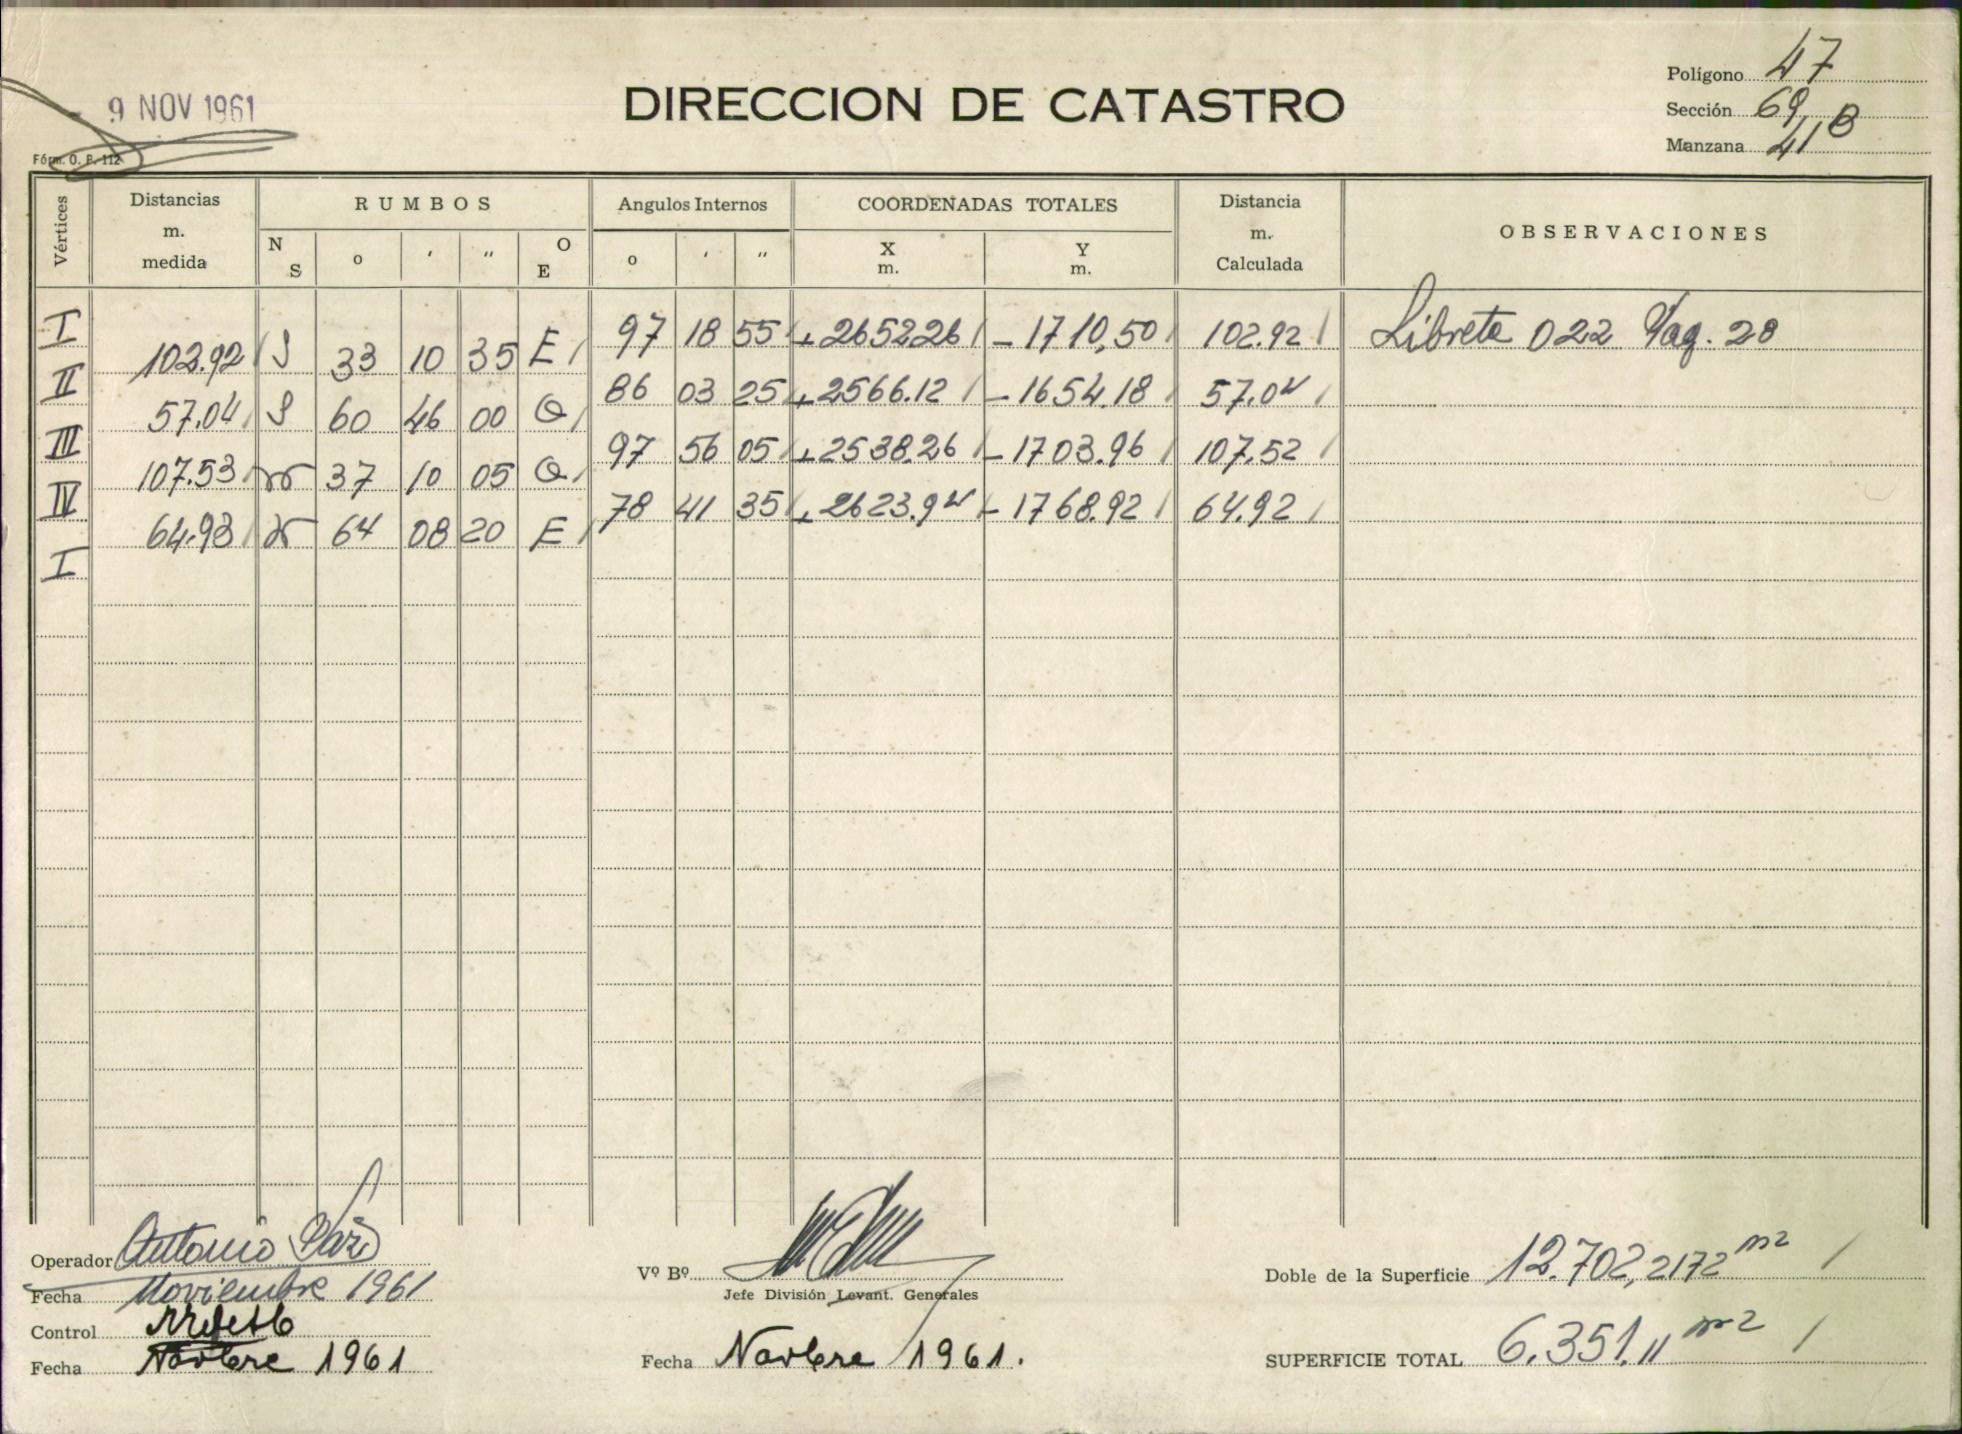 9 NOV 1961
DIRECCION DE CATASTRO
Polígono 47
Sección 69, B
Manzana 41
Fórm. O. P. 112
Vértices Distancias m. medida RUMBOS N S o ' " O E Angulos Internos o ' " COORDENADAS TOTALES X m. Y m. Distancia m. Calculada OBSERVACIONES
I 97 18 55 + 2652.26 - 1710,50 102.92 Libreta 022 Pag. 28
102.92 S 33 10 35 E
II 86 03 25 + 2566.12 - 1654.18 57.04
57.04 S 60 46 00 O
III 97 56 05 + 2538.26 - 1703.96 107.52
107.53 N 37 10 05 O
IV 78 41 35 + 2623.94 - 1768.92 64.92
64.93 N 64 08 20 E
I
Operador Antonio
Fecha Noviembre 1961
Control
Fecha Novbre 1961
Vº Bº
Jefe División Levant. Generales
Fecha Novbre 1961.
Doble de la Superficie 12.702,2172 m2
SUPERFICIE TOTAL 6.351.11 m2